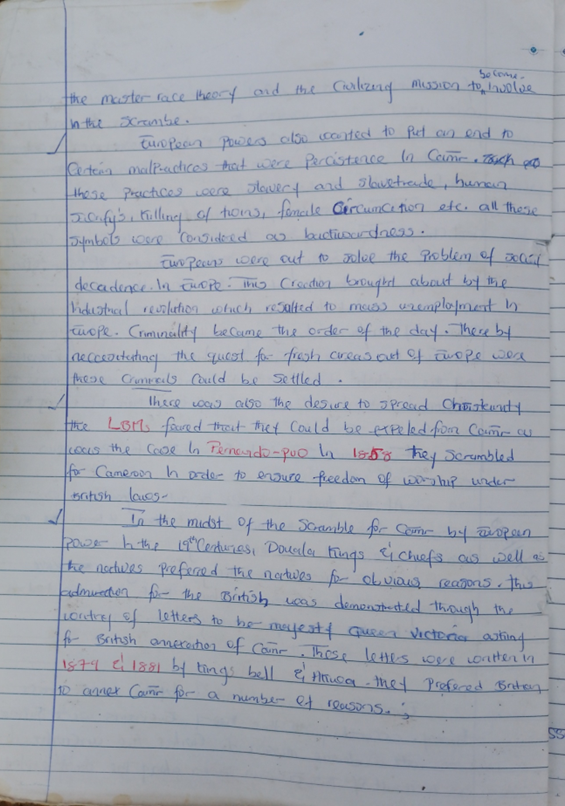 become
the master race theory and the Civilizing mission to involve
in the scrambe.
European Powers also wanted to Put an end to
Certain malpractices that were Percistence In Camr. Such as
these Practices were slavery and slavetrade, human
killing of twins, female Circumcition etc. all these
symbols were Considered as backwardness.
Europeans were out to solve the Problem of social
decadence. In Europe. This Creation brought about by the
Industrial revolution which resulted to mass unemployment In
Europe. Criminality became the order of the day. There by
neccessitating the quest for fresh areas out of Europe were
these Criminals Could be settled.
There was also the desire to spread Christianity
the LBM, feared that they Could be expeled from Camr as
was the Case In Fernando-Puo In 1858 they scrambled
for Cameroon In order to ensure freedom of worship under
British laws-
In the midst of the Scramble for Camr by European
Power In the 19th Centuries, Douala Kings & chiefs as well as
the natives Preferred the natives for obvious reasons. This
admiration for the British was demonstrated though the
writing of letters to her majesty Queen Victoria asking
for British annexation of Camr. These letters were written in
1879 & 1881 by Kings bell & Akwa. they Prefered Britain
to annex Camr for a number of reasons.;
55